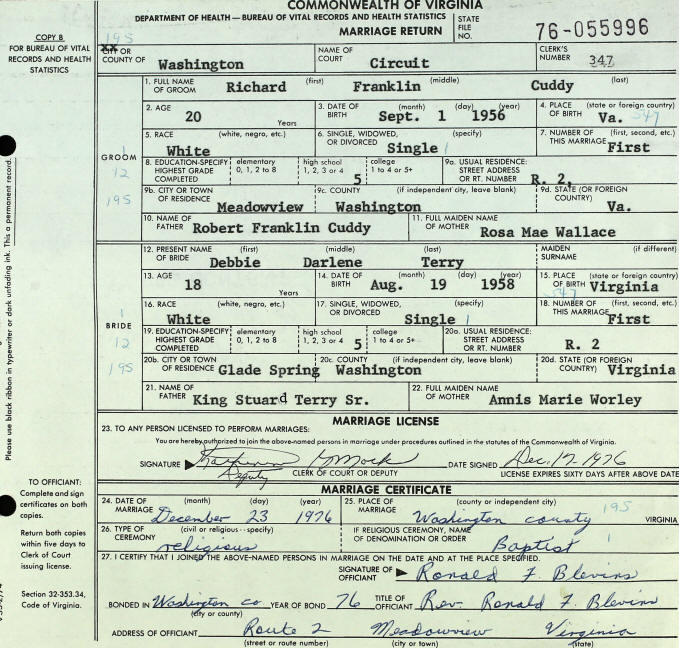 COMMONWEALTH OF VIRGINIA
DEPARTMENT OF HEALTH — BUREAU OF VITAL RECORDS AND HEALTH STATISTICS
MARRIAGE RETURN
STATE FILE NO. 76-055996
COPY B
FOR BUREAU OF VITAL RECORDS AND HEALTH STATISTICS
195
CITY OR COUNTY OF Washington NAME OF COURT Circuit CLERK'S NUMBER 347
GROOM
1. FULL NAME OF GROOM (first) (middle) (last) Richard Franklin Cuddy
2. AGE 20 Years 3. DATE OF BIRTH (month) (day) (year) Sept. 1 1956 4. PLACE OF BIRTH (state or foreign country) Va. 547
5. RACE (white, negro, etc.) White 6. SINGLE, WIDOWED, OR DIVORCED (specify) Single 7. NUMBER OF THIS MARRIAGE (first, second, etc.) First
1
12
195
8. EDUCATION-SPECIFY HIGHEST GRADE COMPLETED elementary 0, 1, 2 to 8 high school 1, 2, 3 or 4 5 college 1 to 4 or 5+ 9a. USUAL RESIDENCE: STREET ADDRESS OR RT. NUMBER R. 2,
9b. CITY OR TOWN OF RESIDENCE Meadowview 9c. COUNTY (if independent city, leave blank) Washington 9d. STATE (OR FOREIGN COUNTRY) Va.
10. NAME OF FATHER Robert Franklin Cuddy 11. FULL MAIDEN NAME OF MOTHER Rosa Mae Wallace
BRIDE
12. PRESENT NAME OF BRIDE (first) (middle) (last) Debbie Darlene Terry MAIDEN SURNAME (if different)
13. AGE 18 Years 14. DATE OF BIRTH (month) (day) (year) Aug. 19 1958 15. PLACE OF BIRTH (state or foreign country) Virginia 547
16. RACE (white, negro, etc.) White 17. SINGLE, WIDOWED, OR DIVORCED (specify) Single 18. NUMBER OF THIS MARRIAGE (first, second, etc.) First
1
12
195
19. EDUCATION-SPECIFY HIGHEST GRADE COMPLETED elementary 0, 1, 2 to 8 high school 1, 2, 3 or 4 5 college 1 to 4 or 5+ 20a. USUAL RESIDENCE: STREET ADDRESS OR RT. NUMBER R. 2
20b. CITY OR TOWN OF RESIDENCE Glade Spring 20c. COUNTY (if independent city, leave blank) Washington 20d. STATE (OR FOREIGN COUNTRY) Virginia
21. NAME OF FATHER King Stuard Terry Sr. 22. FULL MAIDEN NAME OF MOTHER Annis Marie Worley
MARRIAGE LICENSE
23. TO ANY PERSON LICENSED TO PERFORM MARRIAGES:
You are hereby authorized to join the above-named persons in marriage under procedures outlined in the statutes of the Commonwealth of Virginia.
SIGNATURE Mock Deputy CLERK OF COURT OR DEPUTY DATE SIGNED Dec. 17, 1976 LICENSE EXPIRES SIXTY DAYS AFTER ABOVE DATE
MARRIAGE CERTIFICATE
24. DATE OF MARRIAGE (month) (day) (year) December 23 1976 25. PLACE OF MARRIAGE (county or independent city) Washington county 195 VIRGINIA
26. TYPE OF CEREMONY (civil or religious - specify) religious IF RELIGIOUS CEREMONY, NAME OF DENOMINATION OR ORDER Baptist 1
27. I CERTIFY THAT I JOINED THE ABOVE-NAMED PERSONS IN MARRIAGE ON THE DATE AND AT THE PLACE SPECIFIED.
SIGNATURE OF OFFICIANT Ronald F. Blevins
BONDED IN Washington co (city or county) YEAR OF BOND 76 TITLE OF OFFICIANT Rev. Ronald F. Blevins
ADDRESS OF OFFICIANT Route 2 Meadowview Virginia
(street or route number) (city or town) (state)
Please use black ribbon in typewriter or dark unfading ink. This a permanent record.
TO OFFICIANT:
Complete and sign certificates on both copies.
Return both copies within five days to Clerk of Court issuing license.
Section 32-353.34, Code of Virginia.